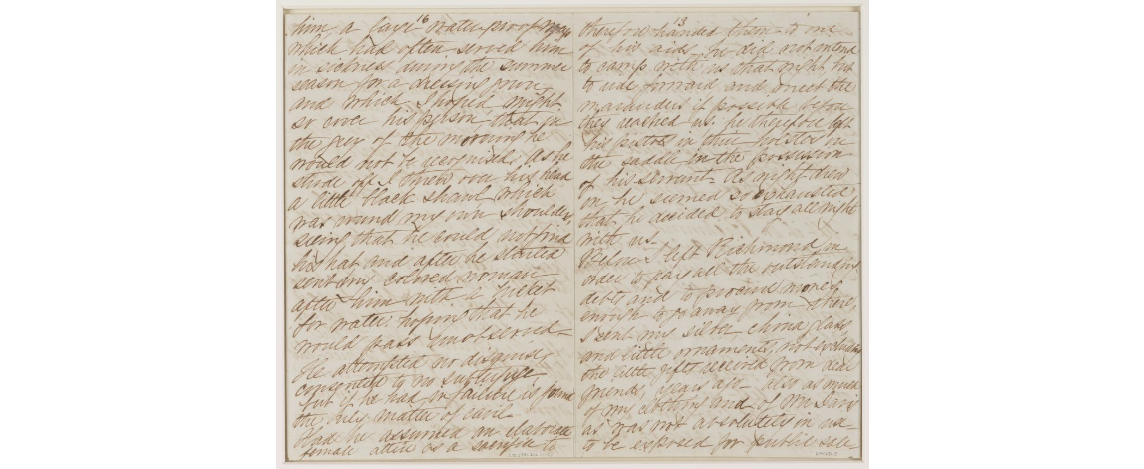 16
him a large water-proof wrap
which had often served him
in sickness during the summer
season for a dressing gown,
and which I hoped might
so cover his person that in
the grey of the morning he
would not be recognised. As he
strode off I threw over his head
a little black shawl which
was round my own shoulders,
seeing that he could not find
his hat and after he started
sent my colored woman
after him with a bucket
for water hoping that he
would pass unobserved—
He attempted no disguise,
consented to no subterfuge
but if he had in failure is found
the only matter of cavil
Had he assumed an elaborate
female attire as a sacrifice to
13
therefore handed them to one
of his aids— he did not intend
to camp with us that night but
to ride forward and meet the
marauders if possible before
they reached us. he therefore left
his pistols in their holsters in
the saddle in the possession
of his servant— As night drew
on he seemed so exhausted
that he decided to stay all night
with us—
Before I left Richmond in
order to pay all the outstanding
debts and to procure money
enough to go away from there,
I sent my silver china glass
and little ornaments, not excluding
the little gifts received from dear
friends, years ago— also as much
of my clothing and of Mr Davis'
as was not absolutely in use
to be exposed for public sale